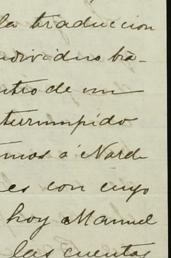 la traduccion
individuo ha-
ntro de un
terrumpido
mos á Nard
es con cuyo
hoy Manuel
las cuentas